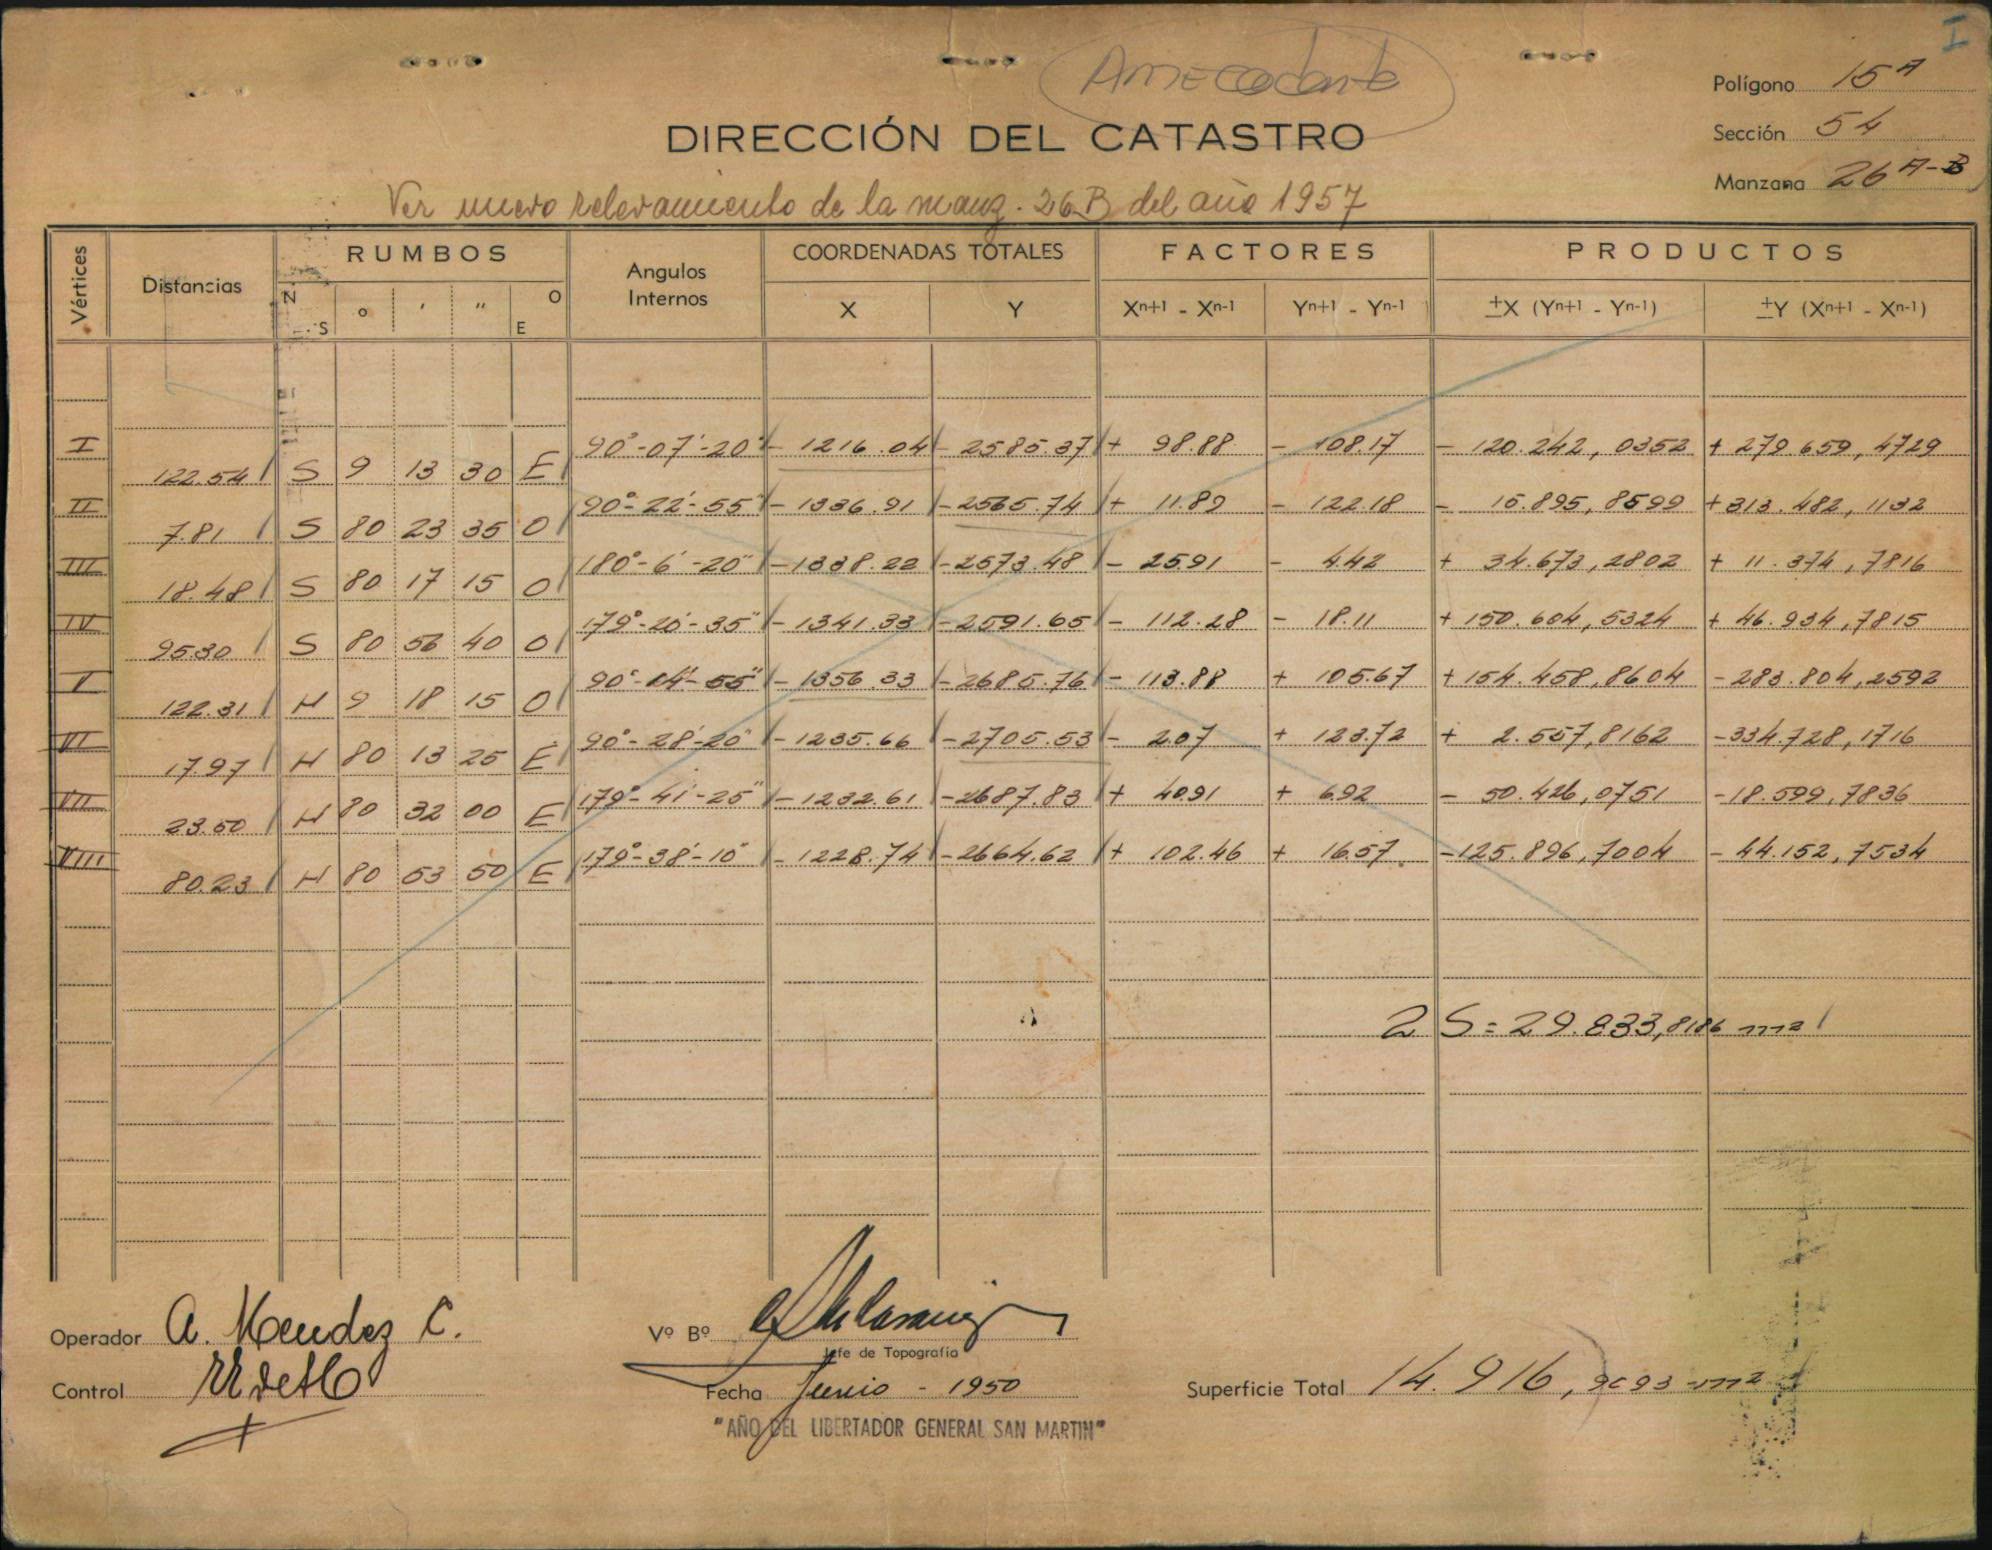 I
Antecedente
Polígono 15 A
DIRECCIÓN DEL CATASTRO
Sección 54
Manzana 26 A-B
Ver nuevo relevamiento de la manz. 26 B del año 1957
Vértices Distancias RUMBOS Angulos Internos COORDENADAS TOTALES FACTORES PRODUCTOS
N S ° ' " O E X Y Xn+1 - Xn-1 Yn+1 - Yn-1 ±X (Yn+1 - Yn-1) ±Y (Xn+1 - Xn-1)
I 90°-07'-20" - 1216.04 - 2585.37 + 98.88 - 108.17 - 120.242,0352 + 279.659,4729
122.54 S 9 13 30 E
II 90°-22'-55" - 1336.91 - 2565.74 + 11.89 - 122.18 - 15.895,8599 + 313.482,1132
7.81 S 80 23 35 O
III 180°-6'-20" - 1338.22 - 2573.48 - 25.91 - 4.42 + 34.673,2802 + 11.374,7816
18.48 S 80 17 15 O
IV 179°-20'-35" - 1341.33 - 2591.65 - 112.28 - 18.11 + 150.604,5324 + 46.934,7815
95.30 S 80 56 40 O
V 90°-14'-55" - 1356.33 - 2685.76 - 113.88 + 105.67 + 154.458,8604 - 283.804,2592
122.31 N 9 18 15 O
VI 90°-28'-20" - 1235.66 - 2705.53 - 2.07 + 123.72 + 2.557,8162 - 334.728,1716
17.97 N 80 13 25 E
VII 179°-41'-25" - 1232.61 - 2687.83 + 40.91 + 6.92 - 50.426,0751 - 18.599,7836
23.50 N 80 32 00 E
VIII 179°-38'-10" - 1228.74 - 2664.62 + 102.46 + 16.57 - 125.896,7004 - 44.152,7534
80.23 N 80 53 50 E
2 S = 29.833,8186 m2
Operador A. Mendez C.
Vº Bº
Jefe de Topografía
Control
Fecha Junio - 1950
Superficie Total 14.916,9093 m2
"AÑO DEL LIBERTADOR GENERAL SAN MARTIN"